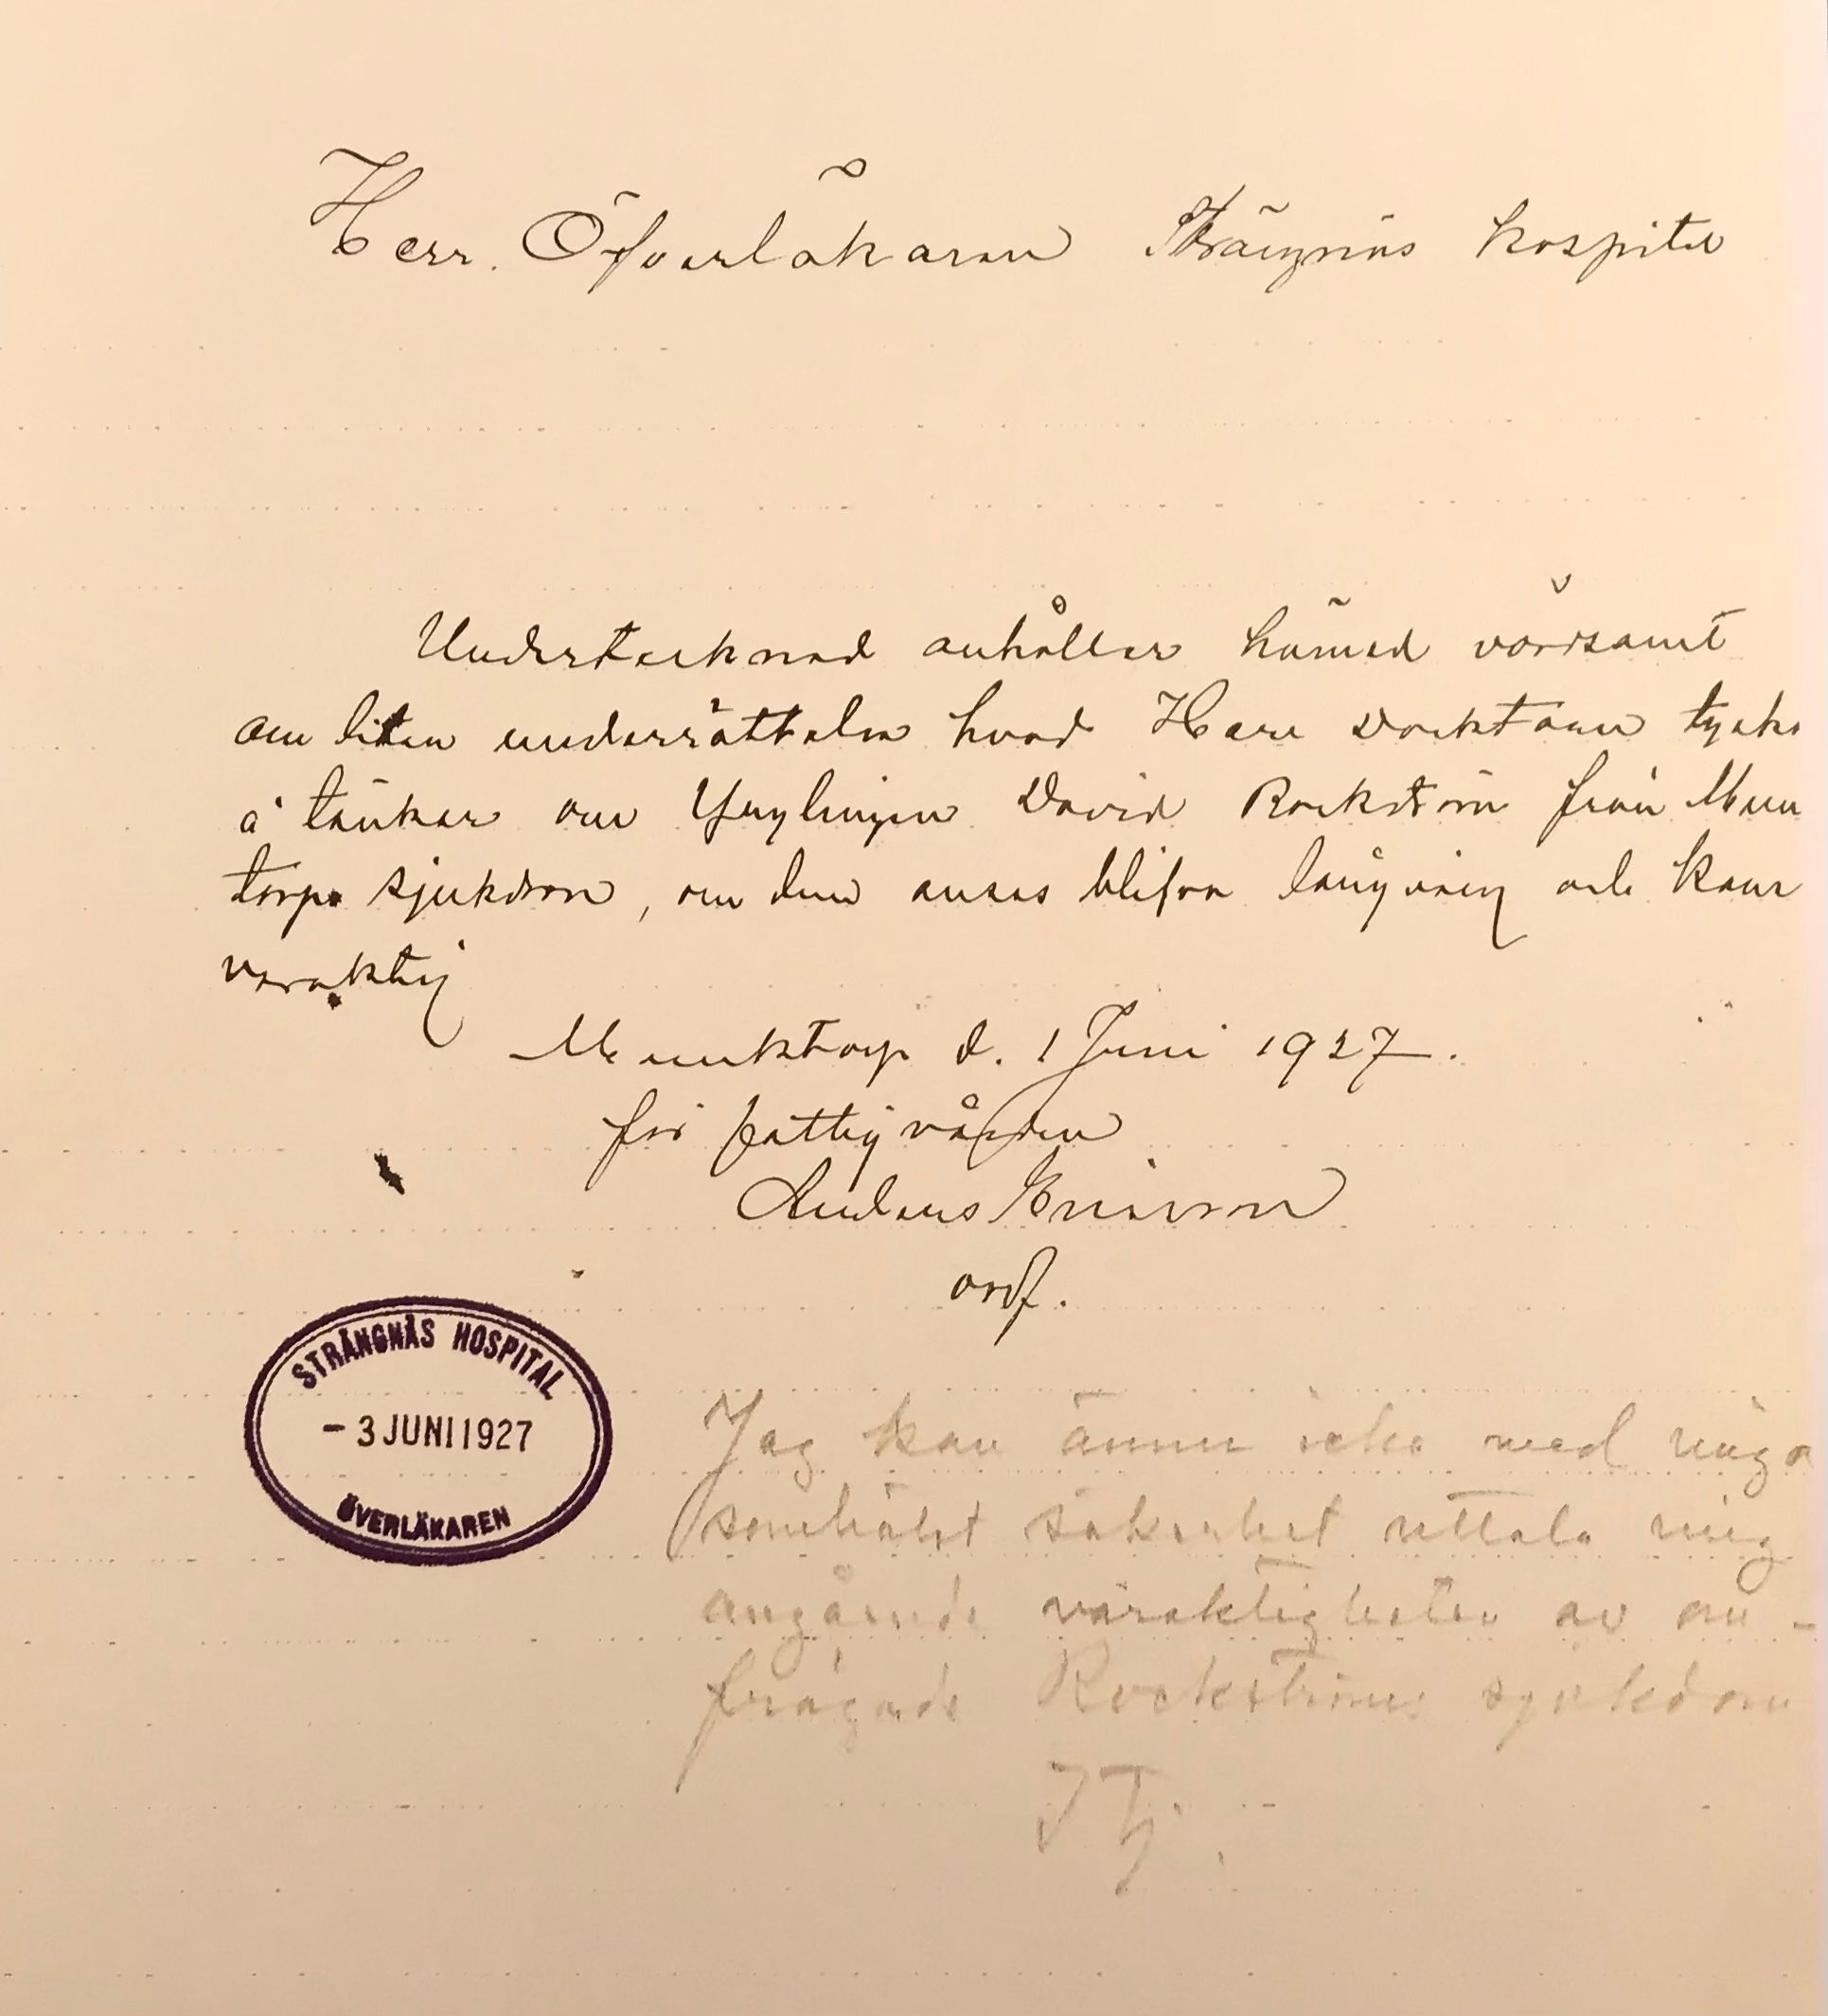 Herr. Öfverläkaren Strängnäs hospital
Undertecknad anhåller härmed vördsamt
om liten underrättelse hvad Herr Docktorn tycks
å tänker om Ynglingen David Rockström från Munk
torps sjukdom, om den anses blifva långvarig och kans
varaktig
Munktorp d. 1 Juni 1927.
för fattigvården
Anders Ericson
ordf.
STRÄNGNÄS HOSPITAL
- 3 JUNI 1927
ÖVERLÄKAREN
Jag kan ännu icke med någon
somhälst säkerhet uttala mig
angående varaktigheten av om-
frågade Rockströms sjukdom